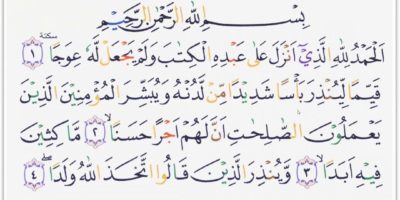 بِسْمِ اللهِ الرَّحْمٰنِ الرَّحِيْمِ
اَلْحَمْدُ لِلّٰهِ الَّذِيْٓ اَنْزَلَ عَلٰى عَبْدِهِ الْكِتٰبَ وَلَمْ يَجْعَلْ لَّهٗ عِوَجًا ۜ ﴿١﴾ سكتة
قَيِّمًا لِّيُنْذِرَ بَأْسًا شَدِيْدًا مِّنْ لَّدُنْهُ وَيُبَشِّرَ الْمُؤْمِنِيْنَ الَّذِيْنَ
يَعْمَلُوْنَ الصّٰلِحٰتِ اَنَّ لَهُمْ اَجْرًا حَسَنًا ۙ ﴿٢﴾ مَّا كِثِيْنَ
فِيْهِ اَبَدًا ۙ ﴿٣﴾ وَّيُنْذِرَ الَّذِيْنَ قَالُوا اتَّخَذَ اللهُ وَلَدًا ۖ ﴿٤﴾